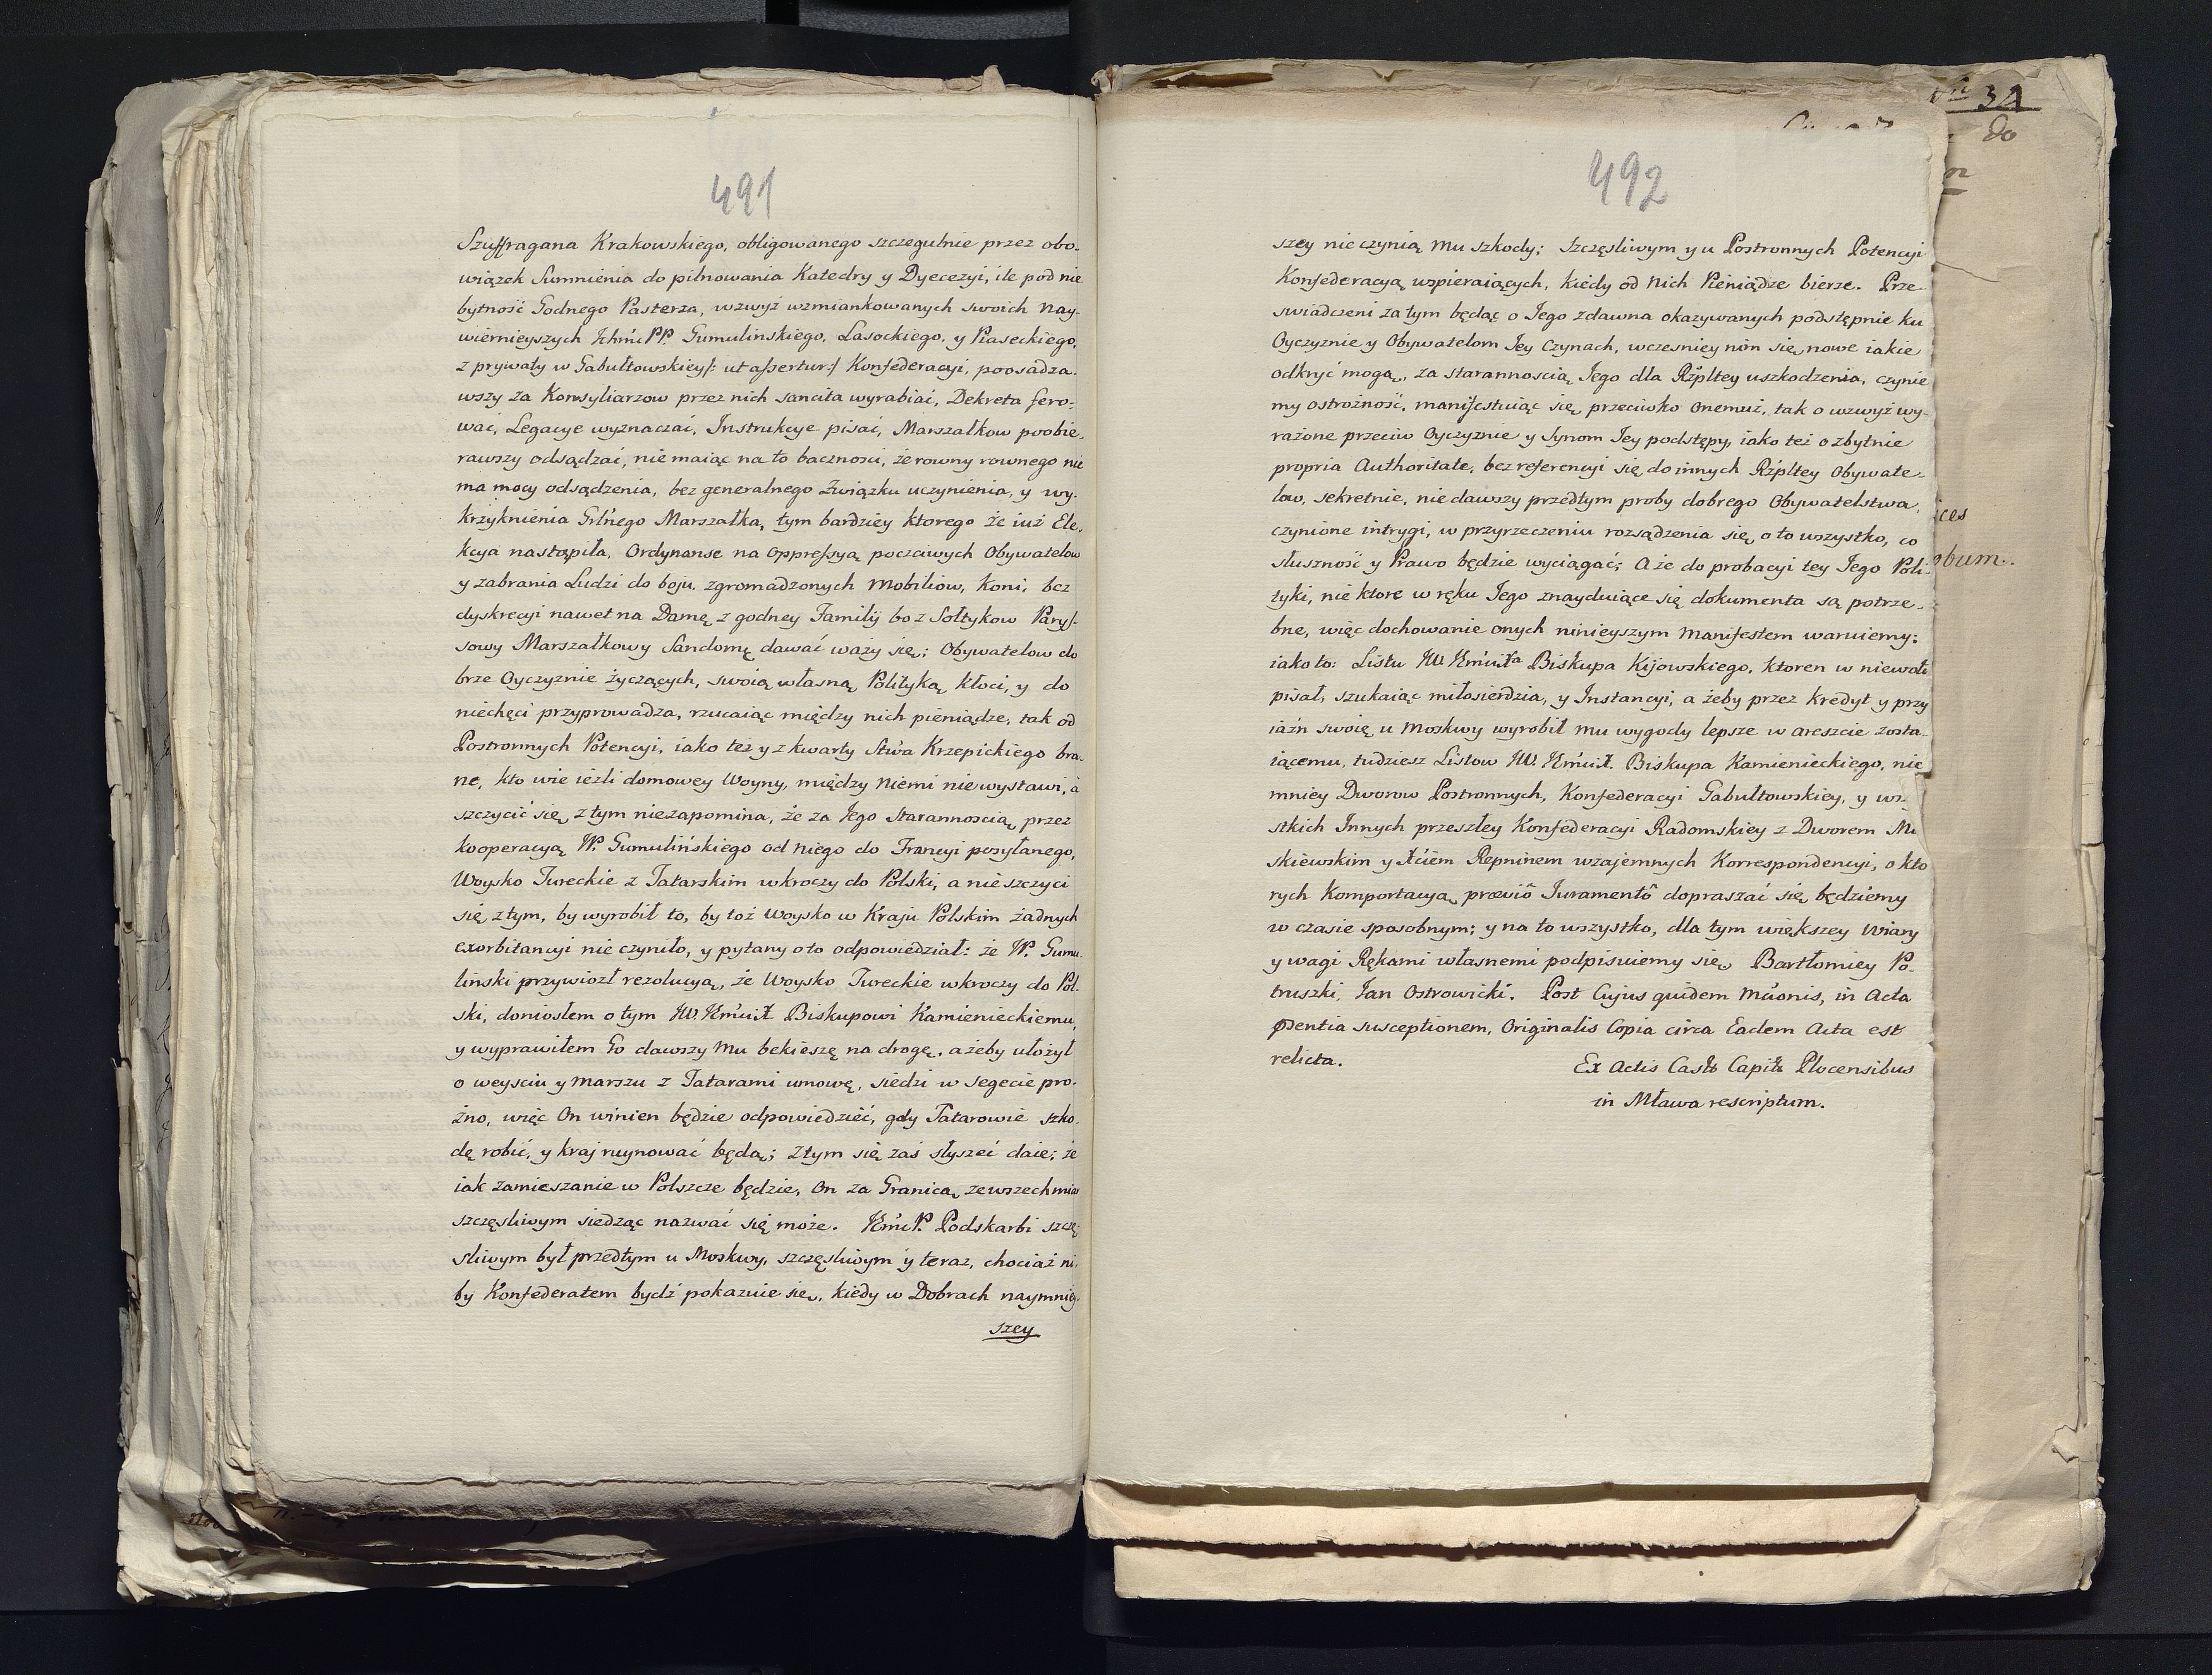 491
Szuffragana Krakowskiego, obligowanego szczegulnie przez obo-
wiązek Sumnienia do pilnowania Katedry y Dyecezyi, ile pod nie
bytność Godnego Pasterza, wzwyż wzmiankowanych swoich nay-
wiernieyszych Ichmć PP. Gumulinskiego, Lasockiego, y Piaseckiego,
z prywaty w Gabułtowskiey /: ut assertur :/ Konfederacyi, poosadza-
wszy za Konsyliarzow przez nich sancita wyrabiać, Dekreta fero-
wać, Legacye wyznaczać, Instrukcye pisać, Marszałkow poobie-
rawszy odsądzać, nie maiąc na to bacznosci, że rowny rownego nie
ma mocy odsądzenia, bez generalnego Związku uczynienia, y wy-
krzyknienia Grlnego Marszałka, tym bardziey ktorego że iuż Ele-
kcya nastąpiła, Ordynanse na oppressyą poczciwych Obywatelow
y zabrania Ludzi do boju zgromadzonych Mobiliow, Koni, bez
dyskrecyi nawet na Damę z godney Familij bo z Sołtykow Parys-
sowy Marszałkowy Sandomę dawać waży się; Obywatelow do
brze Oyczyznie życzących, swoią własną Polityką kłoci, y do
niechęci przyprowadza, rzucaiąc między nich pieniądze, tak od
Postronnych Potencyi, iako też y z kwarty Stwa Krzepickiego bra-
ne, kto wie ieżli domowey Woyny, między Niemi niewystawi, à
szczycić się z tym niezapomina, że za Jego starannoscią przez
kooperacyą W. Gumulińskiego od niego do Francyi posyłanego,
Woysko Tureckie z Tatarskim wkroczy do Polski, a nie szczyci
się z tym, by wyrobił to, by toż Woysko w Kraju Polskim żadnych
exorbitancyi nie czyniło, y pytany o to odpowiedział: że W. Gumu-
linski przywiozł rezolucyą, że Woysko Tureckie wkroczy do Pol-
ski, doniosłem o tym JW. Jmci X Biskupowi Kamienieckiemu,
y wyprawiłem Go dawszy Mu bekieszę na drogę, ażeby ułożył
o weysciu y marszu z Tatarami umowę, siedzi w Segecie pro-
żno, więc On winien będzie odpowiedzieć, gdy Tatarowie szko-
dę robić, y kraj ruynować będą; Z tym się zaś słyszeć daie; że
iak zamieszanie w Polszcze będzie, On za Granicą zewszechmiar
szczęsliwym siedząc nazwać się może. Jmć P. Podskarbi szczę-
sliwym był przedtym u Moskwy, szczęsliwym y teraz, chociaż ni-
by Konfederatem bydź pokazuie się, kiedy w Dobrach naymniey-
szey
492
szey nie czynią Mu szkody; Szczęsliwym y u Postronnych Potencyi
Konfederacyą wspieraiących, kiedy od Nich Pieniądze bierze. Prze
swiadczeni zatym będąc o Jego zdawna okazywanych podstępnie ku
Oyczyznie y Obywatelom Jey Czynach, wczesniey nim się nowe iakie
odkryć mogą, za starannoscią Jego dla Rzpltey uszkodzenia, czynie
my ostrożność, manifestuiąc się przeciwko Onemuż, tak o wzwyż wy-
rażone przeciw Oyczyznie y Synom Jey podstępy, iako też o zbytnie
propria Authoritate, bez referencyi się do innych Rzpltey Obywate-
low, sekretnie, nie dawszy przedtym proby dobrego Obywatelstwa,
czynione intrygi, w przyrzeczeniu rozsądzenia się o to wszystko, co
słuszność y Prawo będzie wyciągać; A że do probacyi tey Jego Poli-
tyki, nie ktore w ręku Jego znayduiące się dokumenta są potrze-
bne, więc dochowanie onych ninieyszym Manifestem waruiemy:
iako to: Listu JW. Jmci Xa Biskupa Kijowskiego, ktoren w niewoli
pisał, szukaiąc miłosierdzia, y Instancyi, a żeby przez Kredyt y przy
iaźn swoię u Moskwy wyrobił mu wygody lepsze w areszcie zosta-
iącemu, tudziesz Listow JW. Jmci X. Biskupa Kamienieckiego, nie
mniey Dworow Postronnych, Konfederacyi Gabułtowskiey, y wszy
stkich Innych przeszłey Konfederacyi Radomskiey z Dworem Mo
skiewskim y Xciem Repninem wzajemnych Korrespondencyi, o kto
rych Komportacyą prævio Juramento dopraszać się będziemy
w czasie sposobnym; y na to wszystko, dla tym większey Wiary
y wagi Rękami własnemi podpisuiemy się Bartłomiey Po-
truszki, Jan Ostrowicki. Post Cujus quidem Mãonis, in Acta
pñtia susceptionem, Originalis Copia circa Eadem Acta est
relicta.
Ex Actis Castr Capitt Plocensibus
in Mława rescriptum.
34
do
obum.